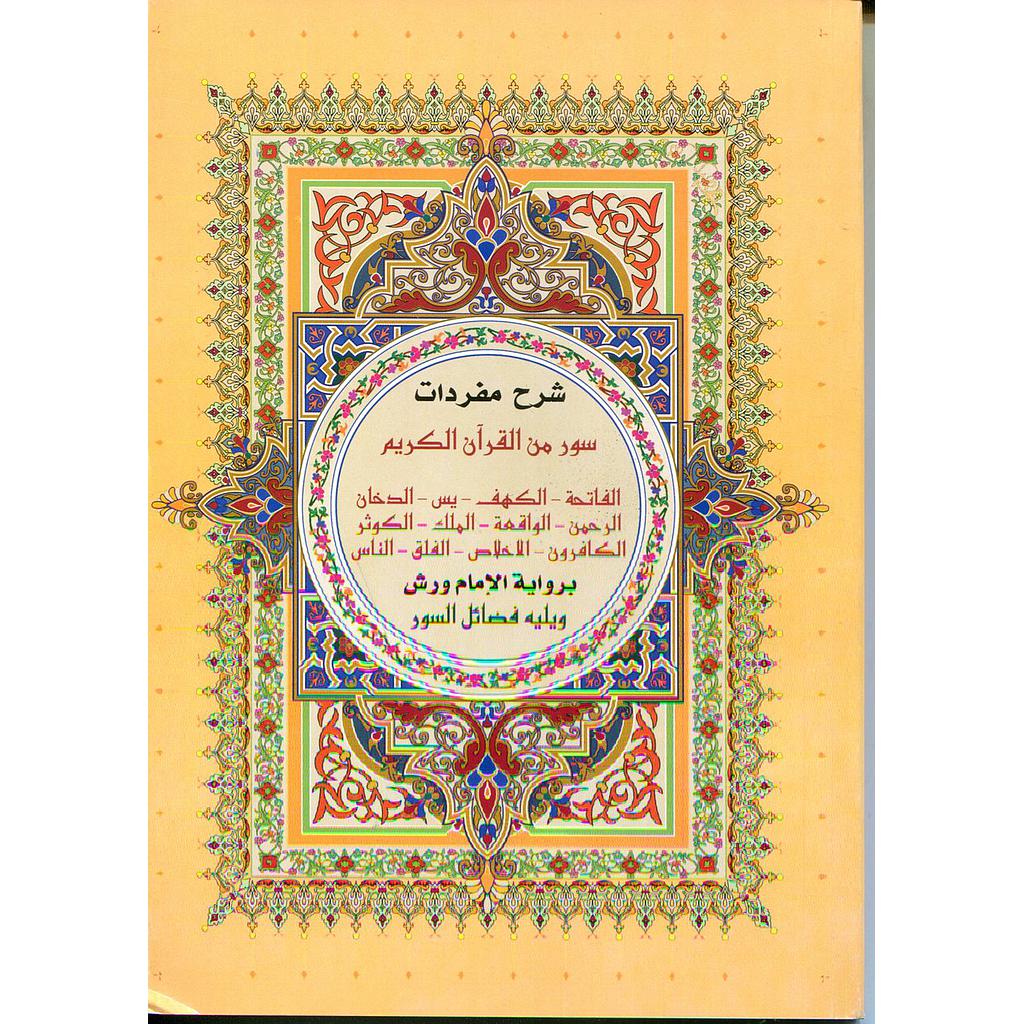 شرح مفردات
سور من القرآن الكريم
الفاتحة - الكهف - يس - الدخان
الرحمن - الواقعة - الملك - الكوثر
الكافرون - الاخلاص - الفلق - الناس
برواية الإمام ورش
ويليه فضائل السور